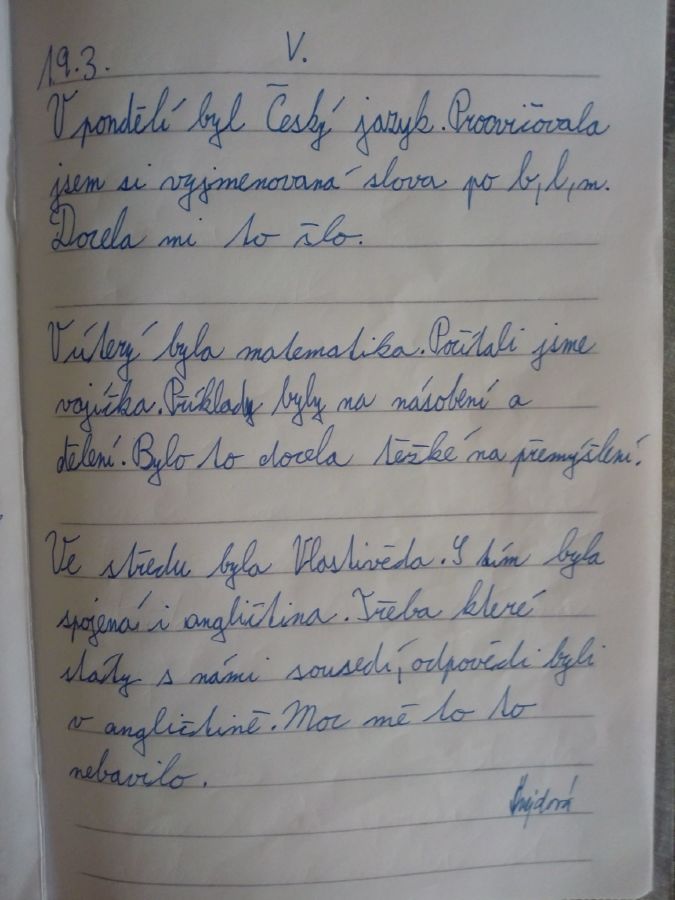 19.3. V.
V pondělí byl Český jazyk. Procvičovala
jsem si vyjmenovaná slova po b, l, m.
Docela mi to šlo.
V úterý byla matematika. Počítali jsme
vajíčka. Příklady byly na násobení a
dělení. Bylo to docela těžké na přemýšlení.
Ve středu byla Vlastivěda. S tím byla
spojená i angličtina. Třeba které
státy s námi sousedí, odpovědi byli
v angličtině. Moc mě to to
nebavilo.